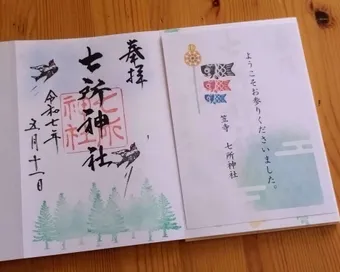 ようこそお参りくださいました。
笠寺 七所神社
奉拝
七所神社
七所神社
令和七年
五月十一日